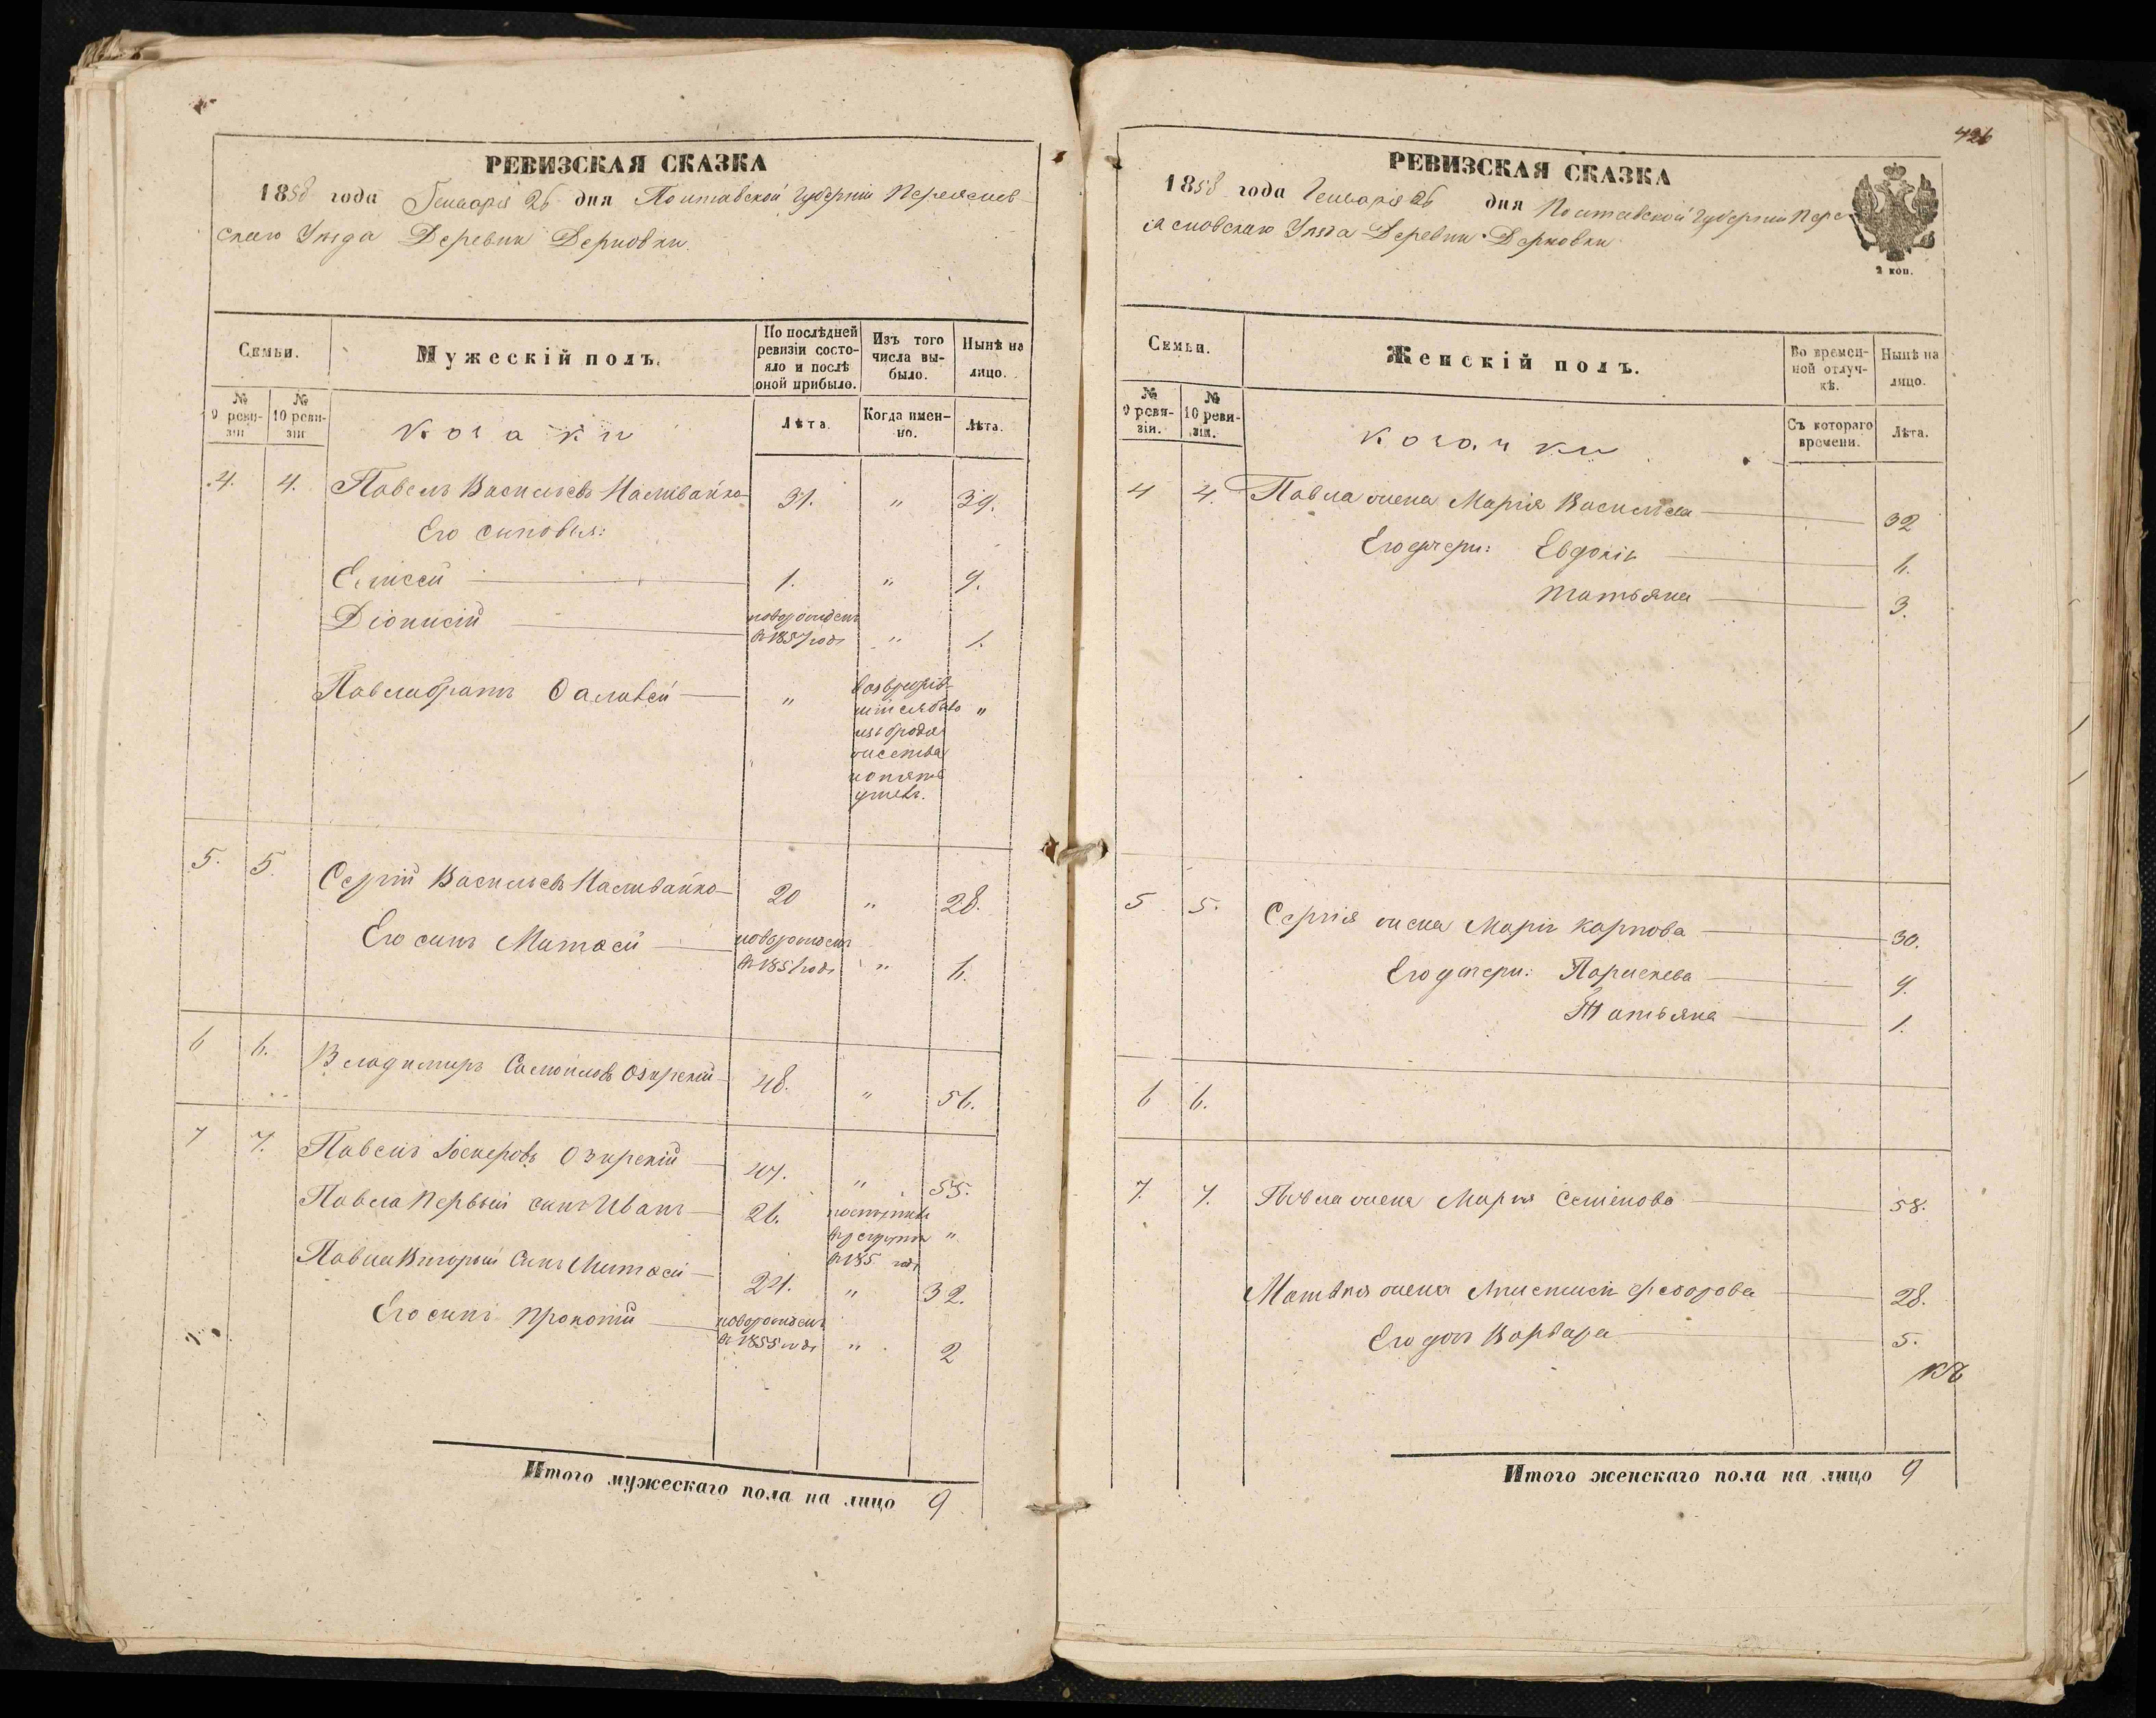 РЕВИЗСКАЯ СКАЗКА
1858 года Генваря 26 дня Полтавской Губерніи Переяслов
скаго Уѣзда Деревни Дерновки
Семьи.
Мужескій полъ.
По послѣдней ревизіи состояло и послѣ оной прибыло.
Изъ того числа выбыло.
Нынѣ на лицо.
№ 9 ревизіи
№ 10 ревизіи
Козаки
Лѣта.
Когда именно.
Лѣта.
4. 4. Павелъ Васильевъ Наливайко 31. " 39.
Его сыновья:
Елисей 1. " 9.
Діонисій новорожденъ
в 1857 годѣ " 1.
Павла братъ "
возвратив
шійся было "
изъ бродя
жества
и опять
5. 5. Сергій Васильевъ Наливайко 20 " 28.
Его сынъ Матвей новорожденъ
" 6.
6 6. Владимиръ Самойловъ Озирскій 48. " 56.
7 7. Павелъ Озирскій 47. " 55.
Павла Первый сынъ Иванъ 26. поступилъ
в рекруты "
в 185 годѣ
Павла Вторый Сынъ Матвей 24. " 32.
Его сынъ Прокопій новорожденъ
в 1855 годѣ " 2
Итого мужескаго пола на лицо 9
426
РЕВИЗСКАЯ СКАЗКА
1858 года Генваря 26 дня Полтавской Губерніи Пере
ясловскаго Уѣзда Деревни Дерновки
2 коп.
Семьи.
Женскій полъ.
Во временной отлучкѣ.
Нынѣ на лицо.
№ 9 ревизіи.
№ 10 ревизіи.
Козачки
Съ котораго времени.
Лѣта.
4 4. Павла жена Марія Васильева 32
Его дочери: Евдокія 6.
Татьяна 3.
5 5. Сергія жена Марія Карпова 30.
Его дочери: Параскева 9.
Татьяна 1.
6 6.
7. 7. Павла жена Марія Семенова 58.
Матвея жена Анастасія Федорова 28.
Его дочь Варвара 5.
Итого женскаго пола на лицо 9